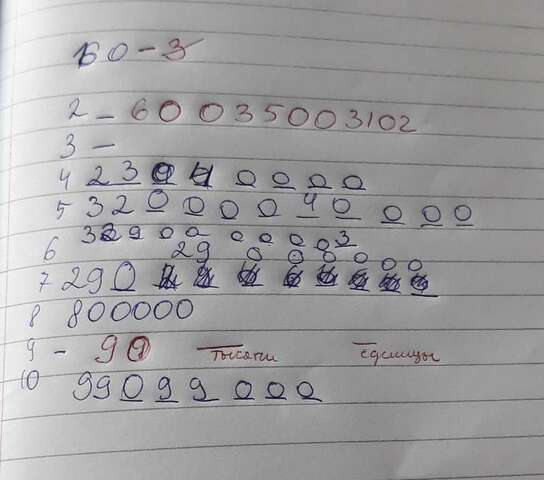 60 - 3
2 - 60035003102
3 -
4 230 0000
5 320000040000
6 32900 00003
29 000000
7 290
8 800000
9 - 90 тысячи единицы
10 99099000